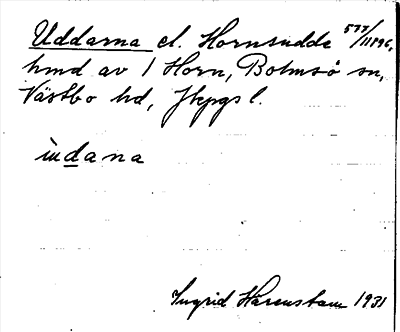 Uddarna el. Hornsudde 577/11896,
hmd av 1 Horn, Bolmsö sn,
Västbo hd, Jkpgs l.
ùdana
Ingrid Härenstam 1931